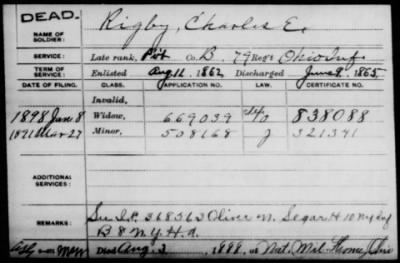 DEAD.
NAME OF SOLDIER: Rigby, Charles E.
SERVICE: Late rank, Pvt Co. B, 79 Reg't Ohio Inf.
TERM OF SERVICE: Enlisted Aug 11, 1862, Discharged June 9, 1865.
DATE OF FILING. CLASS. APPLICATION NO. CERTIFICATE NO.
Invalid,
1898 June 8 Widow, 669039 838088
Mar 27 Minor, 508168 321341
ADDITIONAL SERVICES:
REMARKS: Su I.P. 368363 Oliver N. Segar H 10 Ny Inf
B 8 N.Y. H.A.
Died Aug. 3, 1888, at Nat. Mil. Home, Ohio